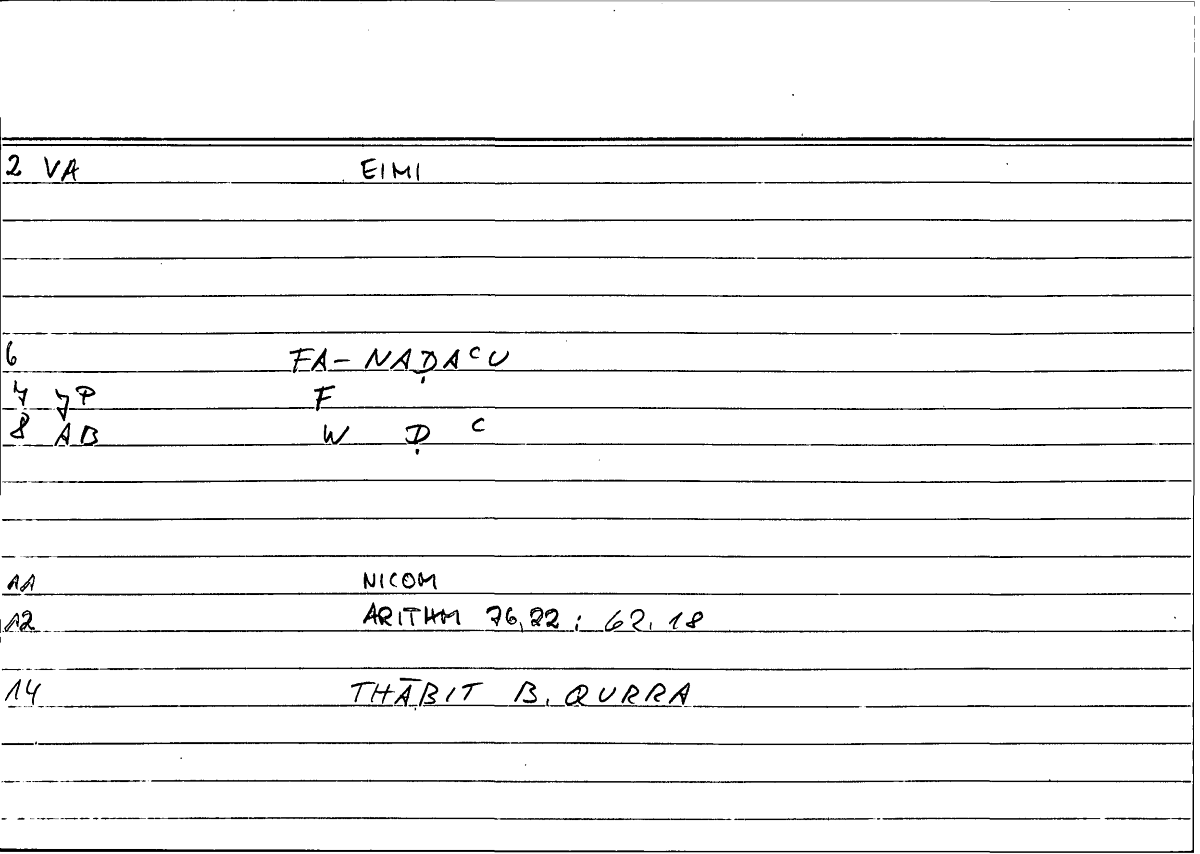 2 VA EIMI
6 FA- NAḌAᶜU
7 JP F
8 AB W Ḍ ᶜ
11 NICOM
12 ARITHM 76,22 ; 62.18
14 THĀBIT B. QURRA